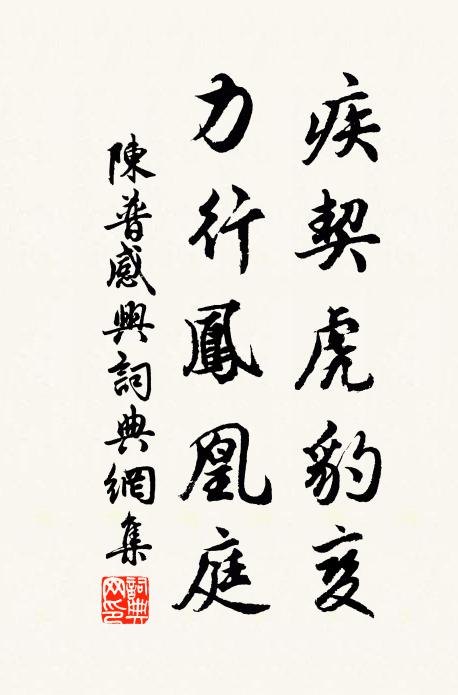 疾契虎豹变
力行鳳凰庭
陳普感興詞典網集
詞典网印